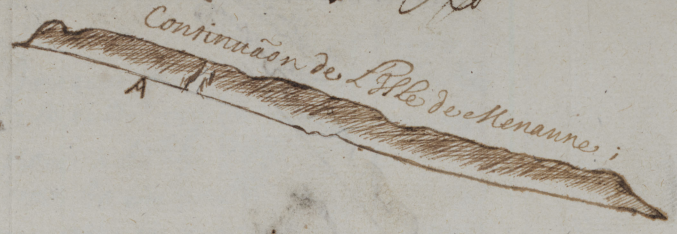 Continuãon de L'Isle de Menanne ;
A